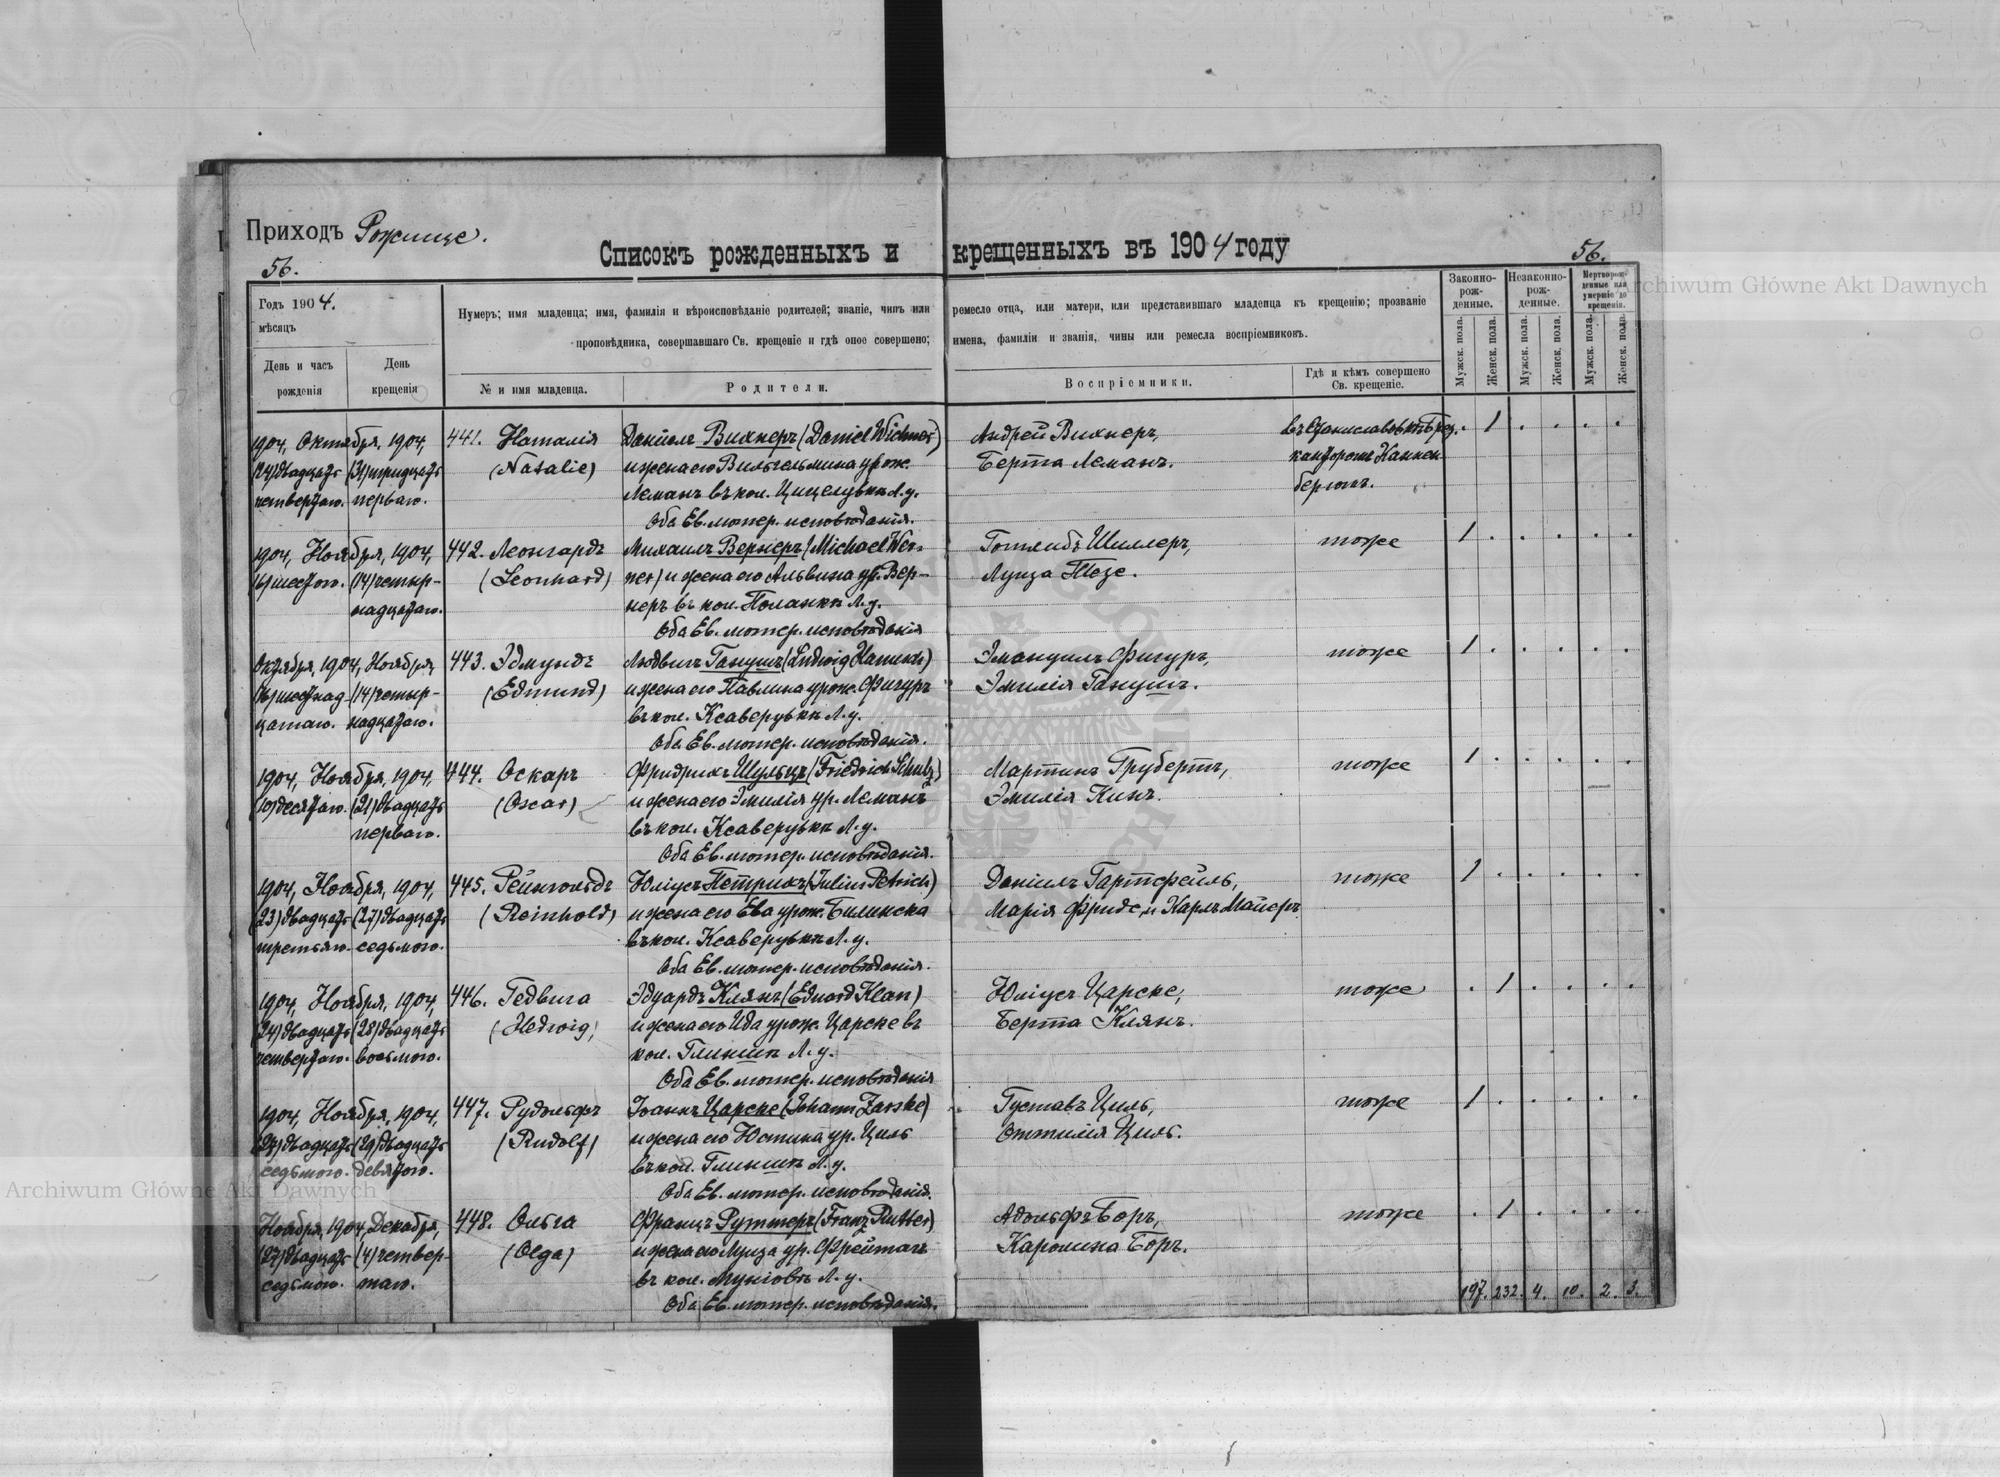 Приходъ Рожище.
56.
Списокъ рожденныхъ и крещенныхъ въ 1904 году
56.
Годъ 1904.
мѣсяцъ
День и часъ
рожденія
День
крещенія
Нумеръ; имя младенца; имя, фамилія и вѣроисповѣданіе родителей; званіе, чинъ или ремесло отца, или матери, или представившаго младенца къ крещенію; прозваніе
проповѣдника, совершавшаго Св. крещеніе и гдѣ оное совершено; имена, фамиліи и званія, чины или ремесла воспріемниковъ.
№ и имя младенца.
Родители.
Воспріемники.
Гдѣ и кѣмъ совершено
Св. крещеніе.
Законно-
рож-
денные.
Незаконно-
рож-
денные.
Мертворож-
денные или
умершіе до
крещенія.
Мужск. пола.
Женск. пола.
Мужск. пола.
Женск. пола.
Мужск. пола.
Женск. пола.
1904, Октября, 1904, 441. Наталія Даніилъ Вихнеръ (Daniel Wichner) Андрей Вихнеръ, 1
(24) двадцать (31) тридцать (Natalie) и жена его Вильгельмина урож. Берта Леманъ. канторомъ Каннен
четвертаго. перваго. Леманъ въ кол. Цицелувкѣ Л.у. бергомъ.
Оба Ев. лютер. исповѣданія.
1904, Ноября, 1904, 442. Леонгардъ Михаилъ Вернеръ (Michael Wer- Готлибъ Шиллеръ, тоже 1
(6) шестого. (14) четыр- (Leonhard) ner) и жена его Альвина ур. Вер- Луиза Тезе.
надцатаго. неръ въ кол. Поланкѣ Л.у.
Оба Ев. лютер. исповѣданія
Октября, 1904, Ноября, 443. Эдмундъ Людвигъ Ганушъ (Ludwig Hanusch) Эмануилъ Фигуръ, тоже 1
(16) шестнад- (14) четыр- (Edmund) и жена его Павлина урож. Фигуръ Эмилія Ганушъ.
цатаго. надцатаго. въ кол. Ксаверувкѣ Л.у.
Оба Ев. лютер. исповѣданія.
1904, Ноября, 1904, 444. Оскаръ Фридрихъ Шульцъ (Friedrich Schulz) Мартинъ Грубертъ, тоже 1
(10) десятаго. (21) двадцать (Oscar) и жена его Эмилія ур. Леманъ Эмилія Кинъ.
перваго. въ кол. Ксаверувкѣ Л.у.
Оба Ев. лютер. исповѣданія.
1904, Ноября, 1904, 445. Рейнгольдъ Юліусъ Петрихъ (Julius Petrich) Даніилъ Гартфейль, тоже 1
(23) двадцать (27) двадцать (Reinhold) и жена его Ева урож. Билинска Марія Фриде, и Карлъ Майеръ
третьяго. седьмого. въ кол. Ксаверувкѣ Л.у.
Оба Ев. лютер. исповѣданія.
1904, Ноября, 1904, 446. Гедвига Эдуардъ Клянъ (Eduard Klan) Юліусъ Царске, тоже 1
(24) двадцать (28) двадцать (Hedwig) и жена его Ида урож. Царске въ Берта Клянъ.
четвертаго. восьмого. кол. Глинищѣ Л.у.
Оба Ев. лютер. исповѣданія
1904, Ноября, 1904, 447. Рудольфъ Іоаннъ Царске (Johann Zarske) Густавъ Циль, тоже 1
(27) двадцать (29) двадцать (Rudolf) и жена его Юстина ур. Циль Оттилія Циль.
седьмого. девятаго. въ кол. Глинищѣ Л.у.
Оба Ев. лютер. исповѣданія.
Ноября, 1904, Декабря, 448. Ольга Францъ Руттеръ (Franz Rutter) Адольфъ Боръ, тоже 1
(27) двадцать (4) четвер- (Olga) и жена его Луиза ур. Фрейтагъ Каролина Боръ.
седьмого. таго. въ кол. Л.у.
Оба Ев. лютер. исповѣданія.
197. 232. 4. 10. 2. 3.
Archiwum Główne Akt Dawnych
Archiwum Główne Akt Dawnych